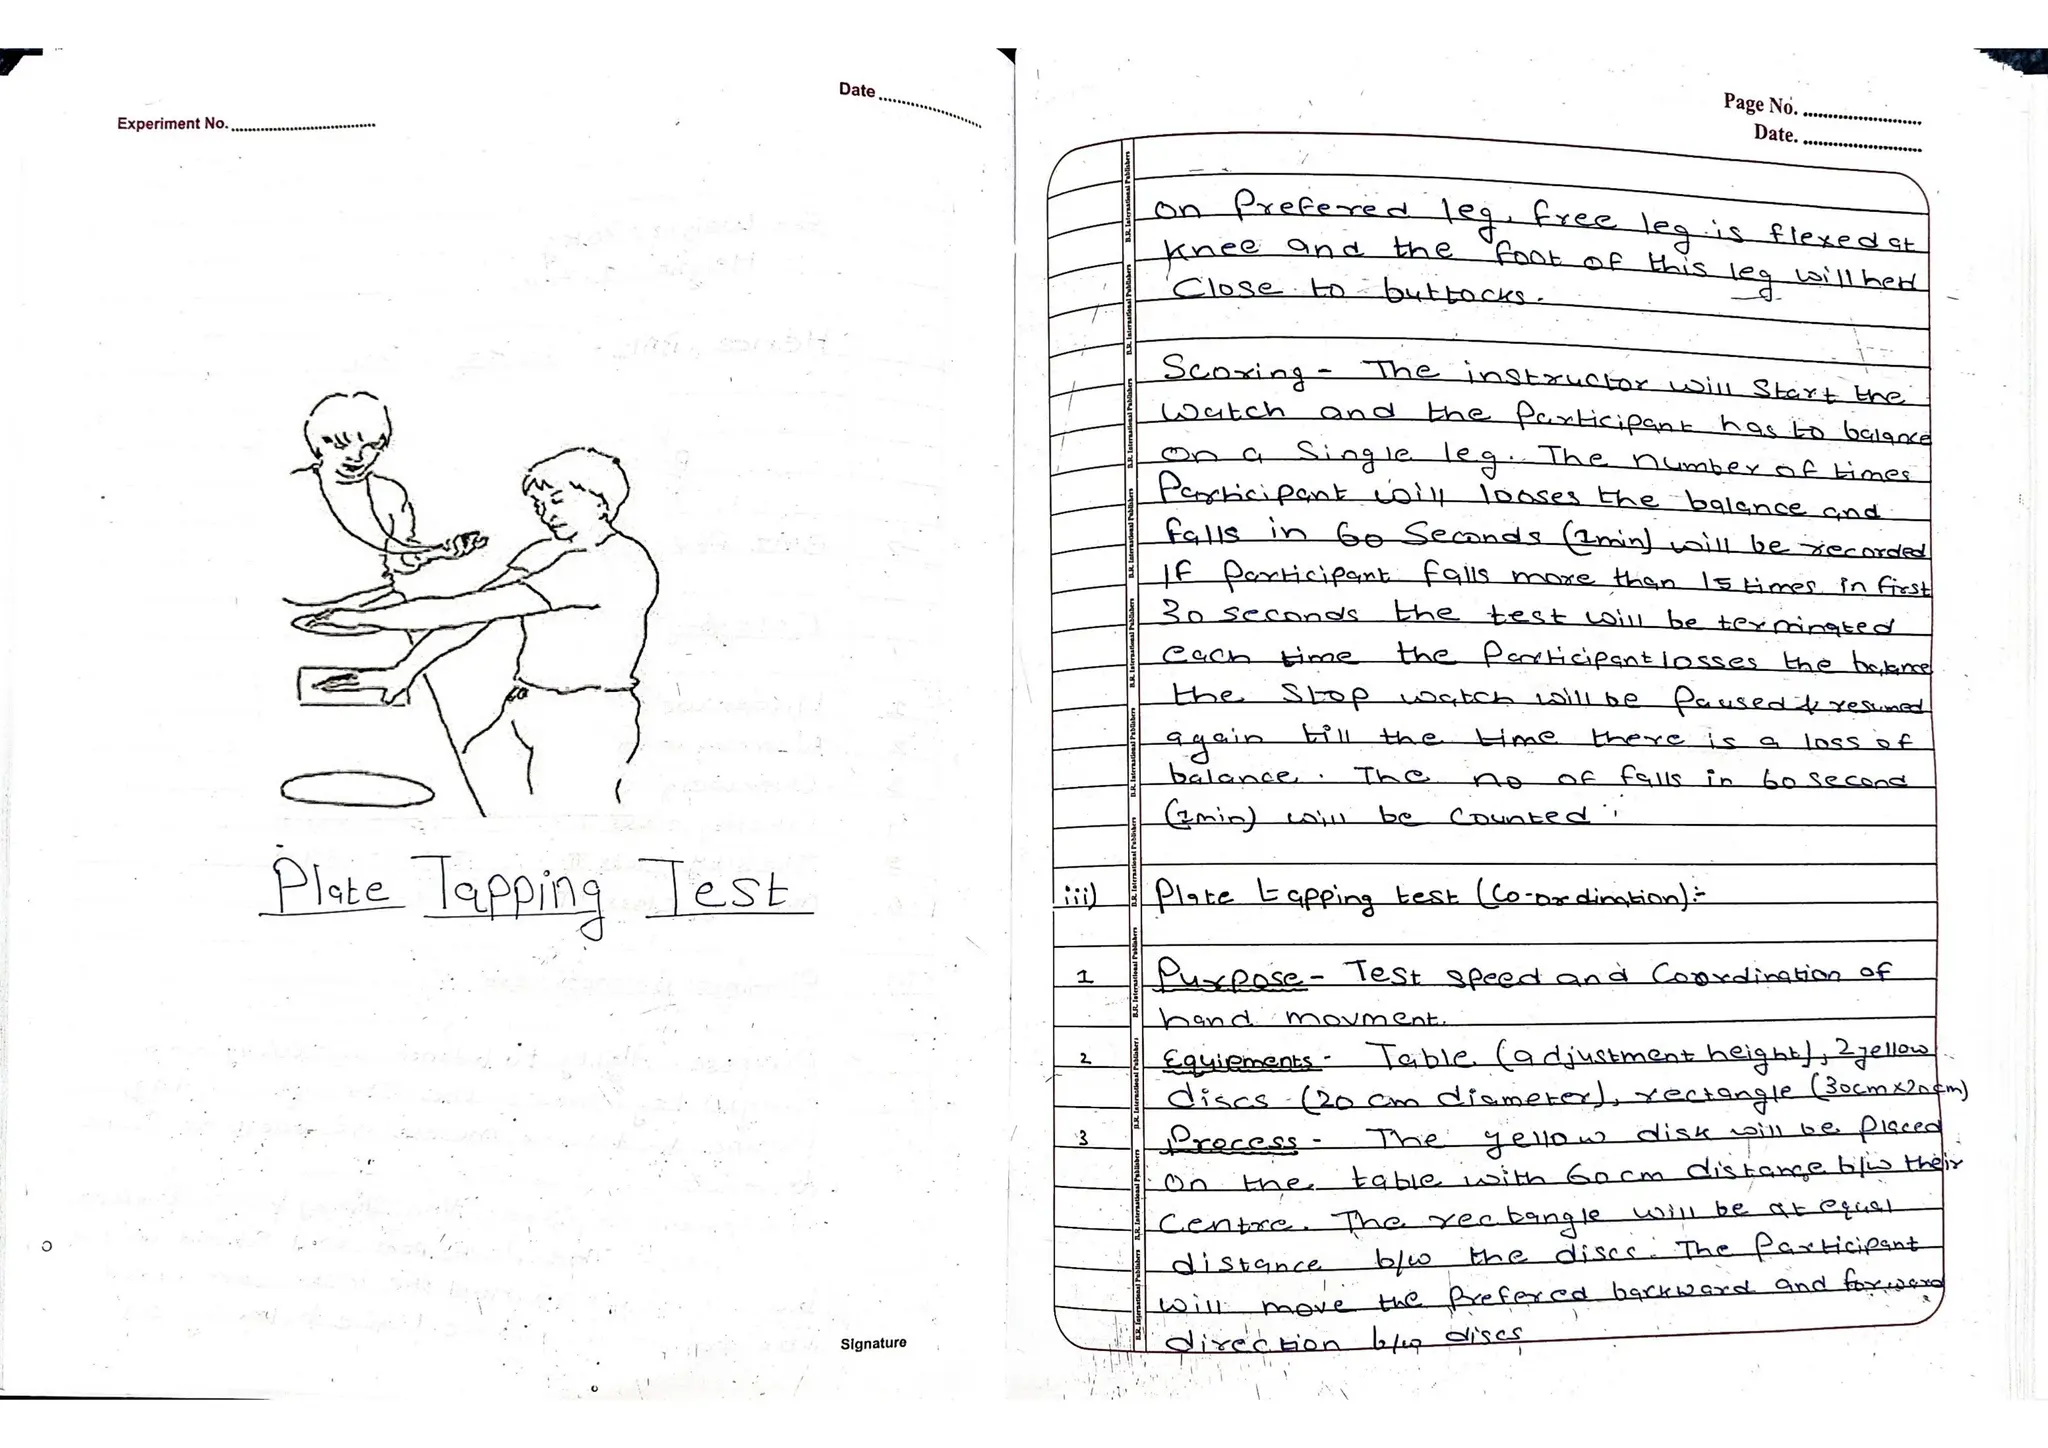 Experiment No.
Date
Plate Tapping Test
Signature
Page No.
Date.
on Prefered leg. free leg is flexed at
Knee and the foot of this leg will held
Close to buttocks.
Scoring - The instructor will Start the
watch and the Participant has to balance
on a Single leg. The number of times
Participant will looses the balance and
falls in 60 Seconds (1min) will be recorded
If Participant falls more than 15 times in first
30 seconds the test will be terminated
each time the Participant losses the balance
the Stop watch will be Paused & resumed
again till the time there is a loss of
balance. The no of falls in 60 second
(1min) will be Counted.
iii) Plate tapping test (Co-ordination):-
1 Purpose - Test speed and Coordination of
hand movment.
2 Equiements - Table (adjustment height), 2 yellow
discs (20 cm diameter), rectangle (30cmx20cm)
3 Process - The yellow disk will be Placed
on the table with 60 cm distance b/w their
Centre. The rectangle will be at equal
distance b/w the discs. The Participant
will move the Prefered backward and forward
direction b/w discs
B.R. International Publishers
B.R. International Publishers
B.R. International Publishers
B.R. International Publishers
B.R. International Publishers
B.R. International Publishers
B.R. International Publishers
B.R. International Publishers
B.R. International Publishers
B.R. International Publishers
B.R. International Publishers